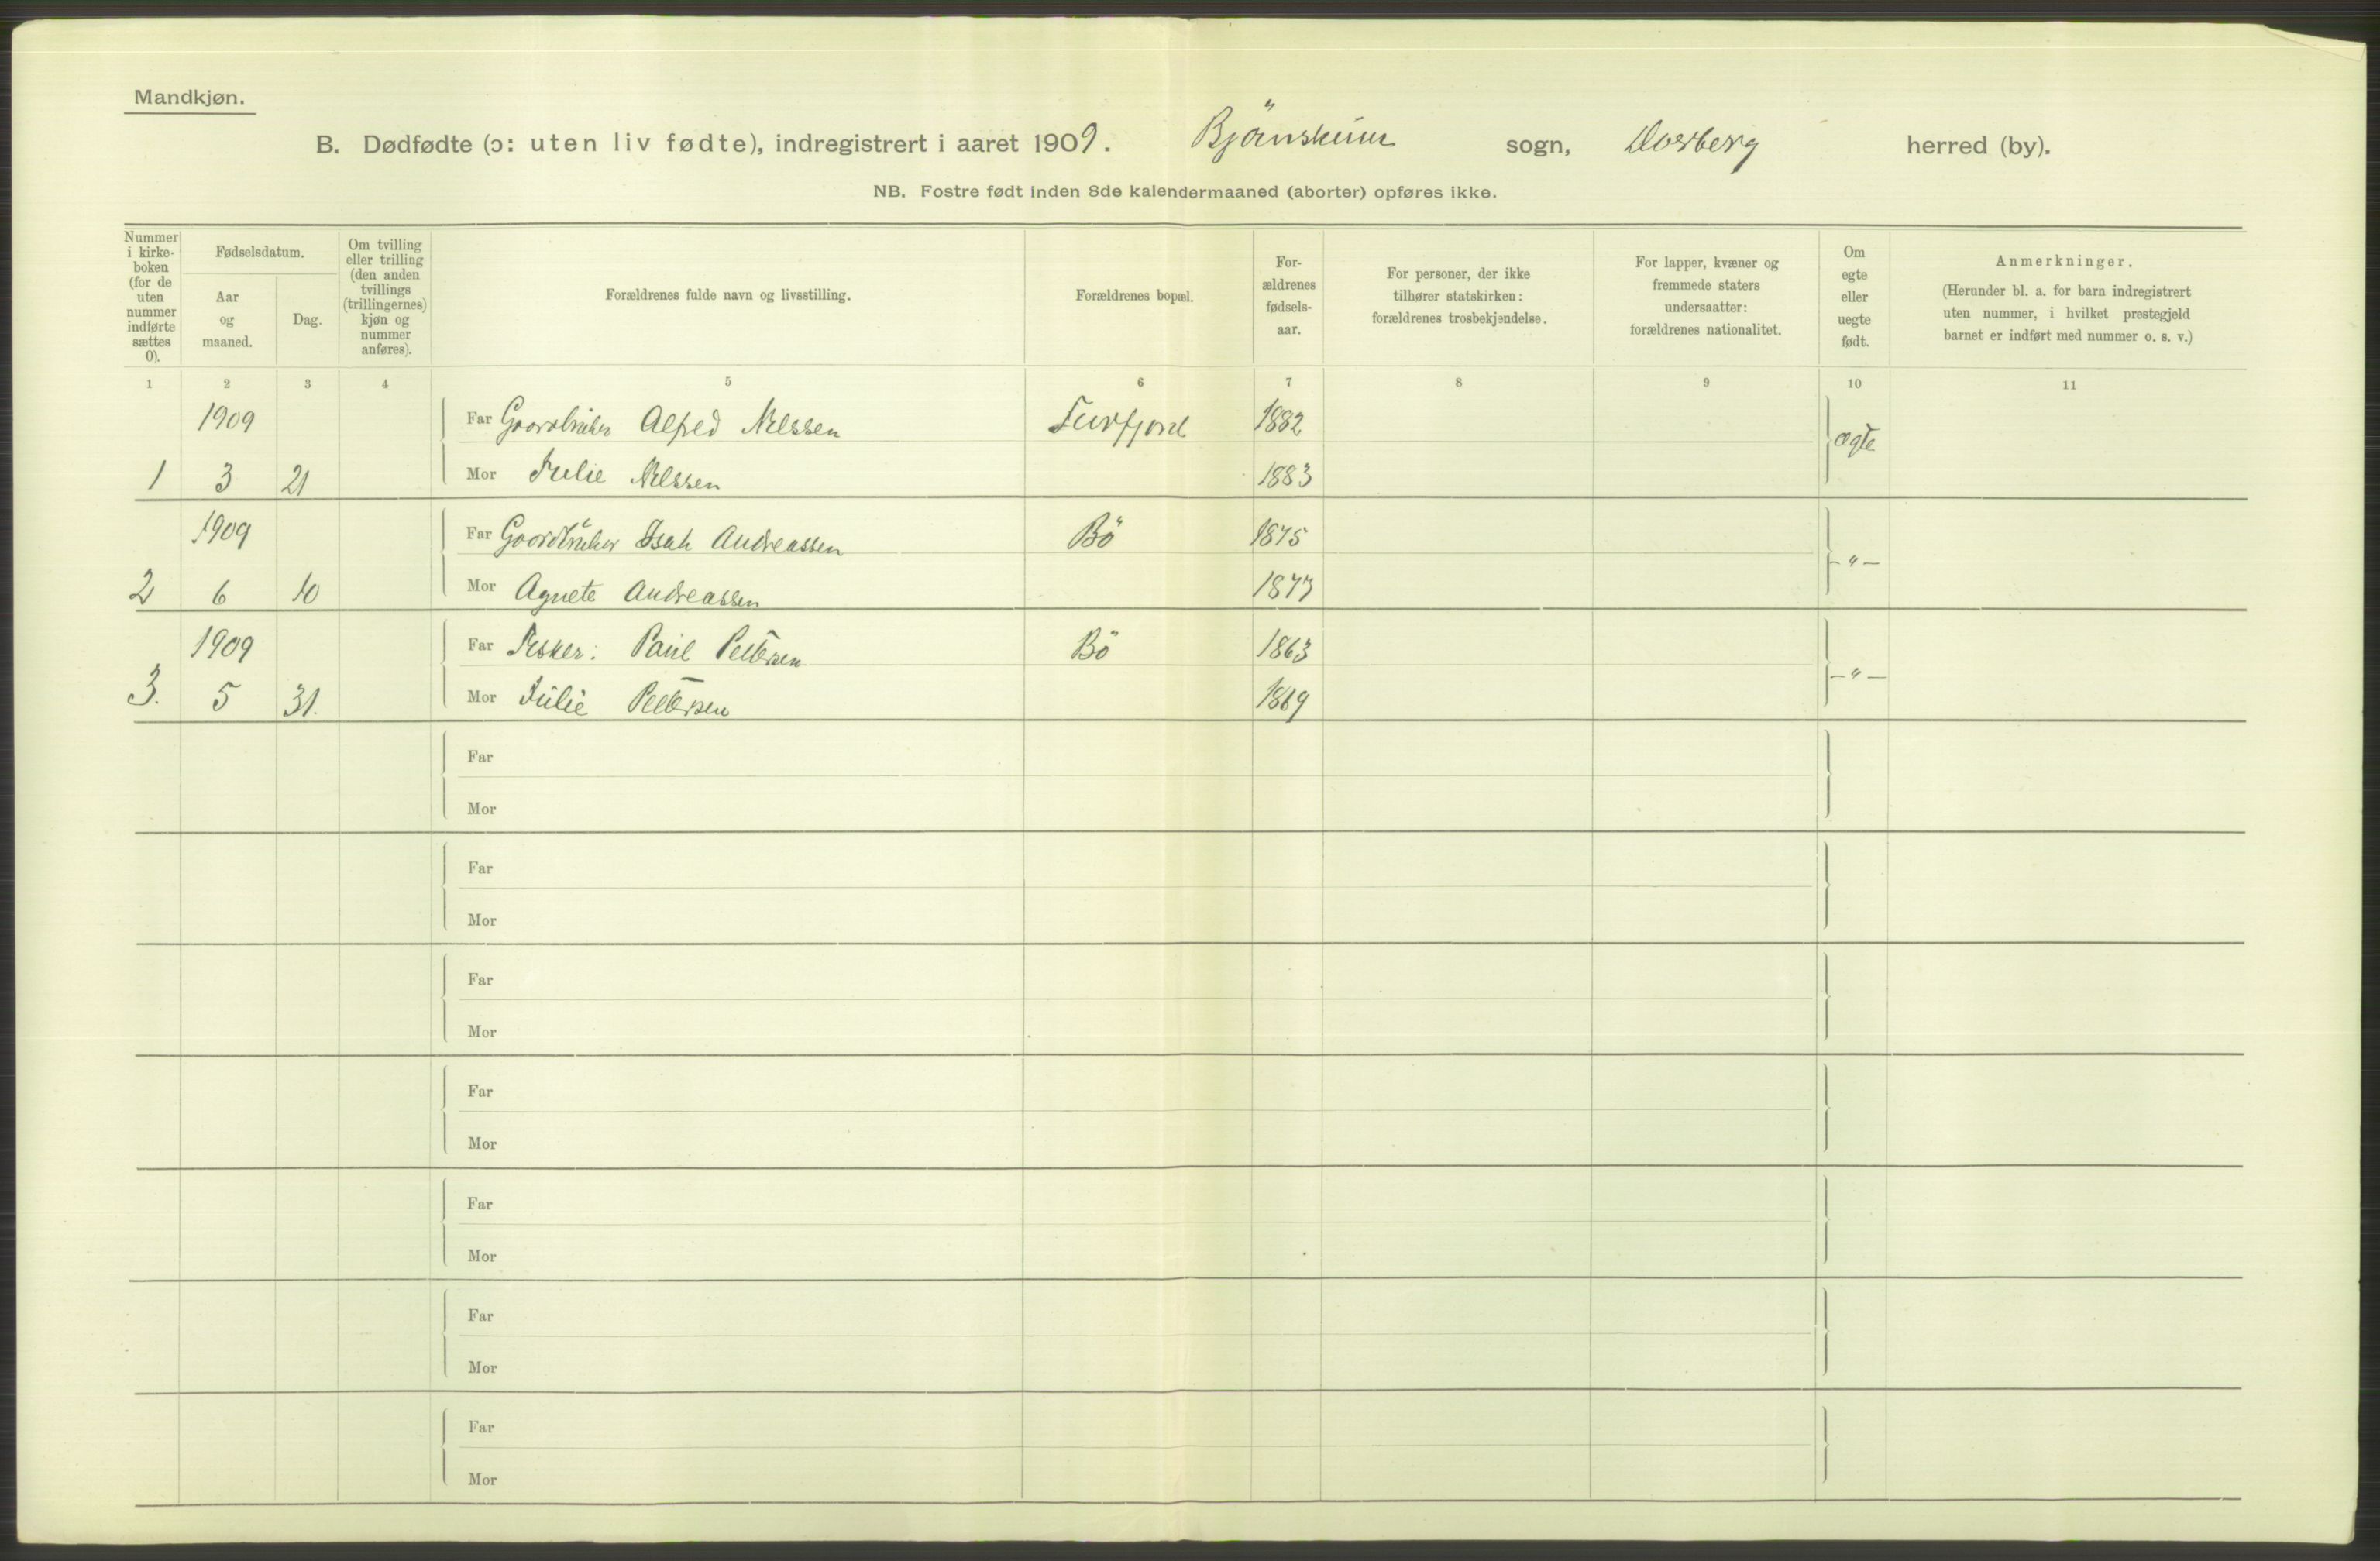 Mandkjøn.
B. Dødfødte (ɔ: uten liv fødte), indregistrert i aaret 1909. Bjönskinn sogn, Dverberg herred (by).
NB. Fostre født inden 8de kalendermaaned (aborter) opføres ikke.
Nummer i kirke-boken (for de uten nummer indførte sættes 0).
Fødselsdatum.
Aar og maaned.
Dag.
Om tvilling eller trilling (den anden tvillings (trillingernes) kjøn og nummer anføres).
Forældrenes fulde navn og livsstilling.
Forældrenes bopæl.
For-ældrenes fødsels-aar.
For personer, der ikke tilhører statskirken: forældrenes trosbekjendelse.
For lapper, kvæner og fremmede staters undersaatter: forældrenes nationalitet.
Om egte eller uegte født.
Anmerkninger.
(Herunder bl. a. for barn indregistrert uten nummer, i hvilket prestegjeld barnet er indført med nummer o. s. v.)
1 2 3 4 5 6 7 8 9 10 11
1909 Far Gaardbruker Alfred Nilssen 1882 ægte
1 3 21 Mor Julie Nilssen 1883
1909 Far Gaardbruker Isak Andreassen Bö 1875 -"-
2 6 10 Mor Agnete Andreassen 1877
1909 Far Fisker: Paul Pettersen Bö 1863 -"-
3. 5 31. Mor Julie Pettersen 1869
Far
Mor
Far
Mor
Far
Mor
Far
Mor
Far
Mor
Far
Mor
Far
Mor